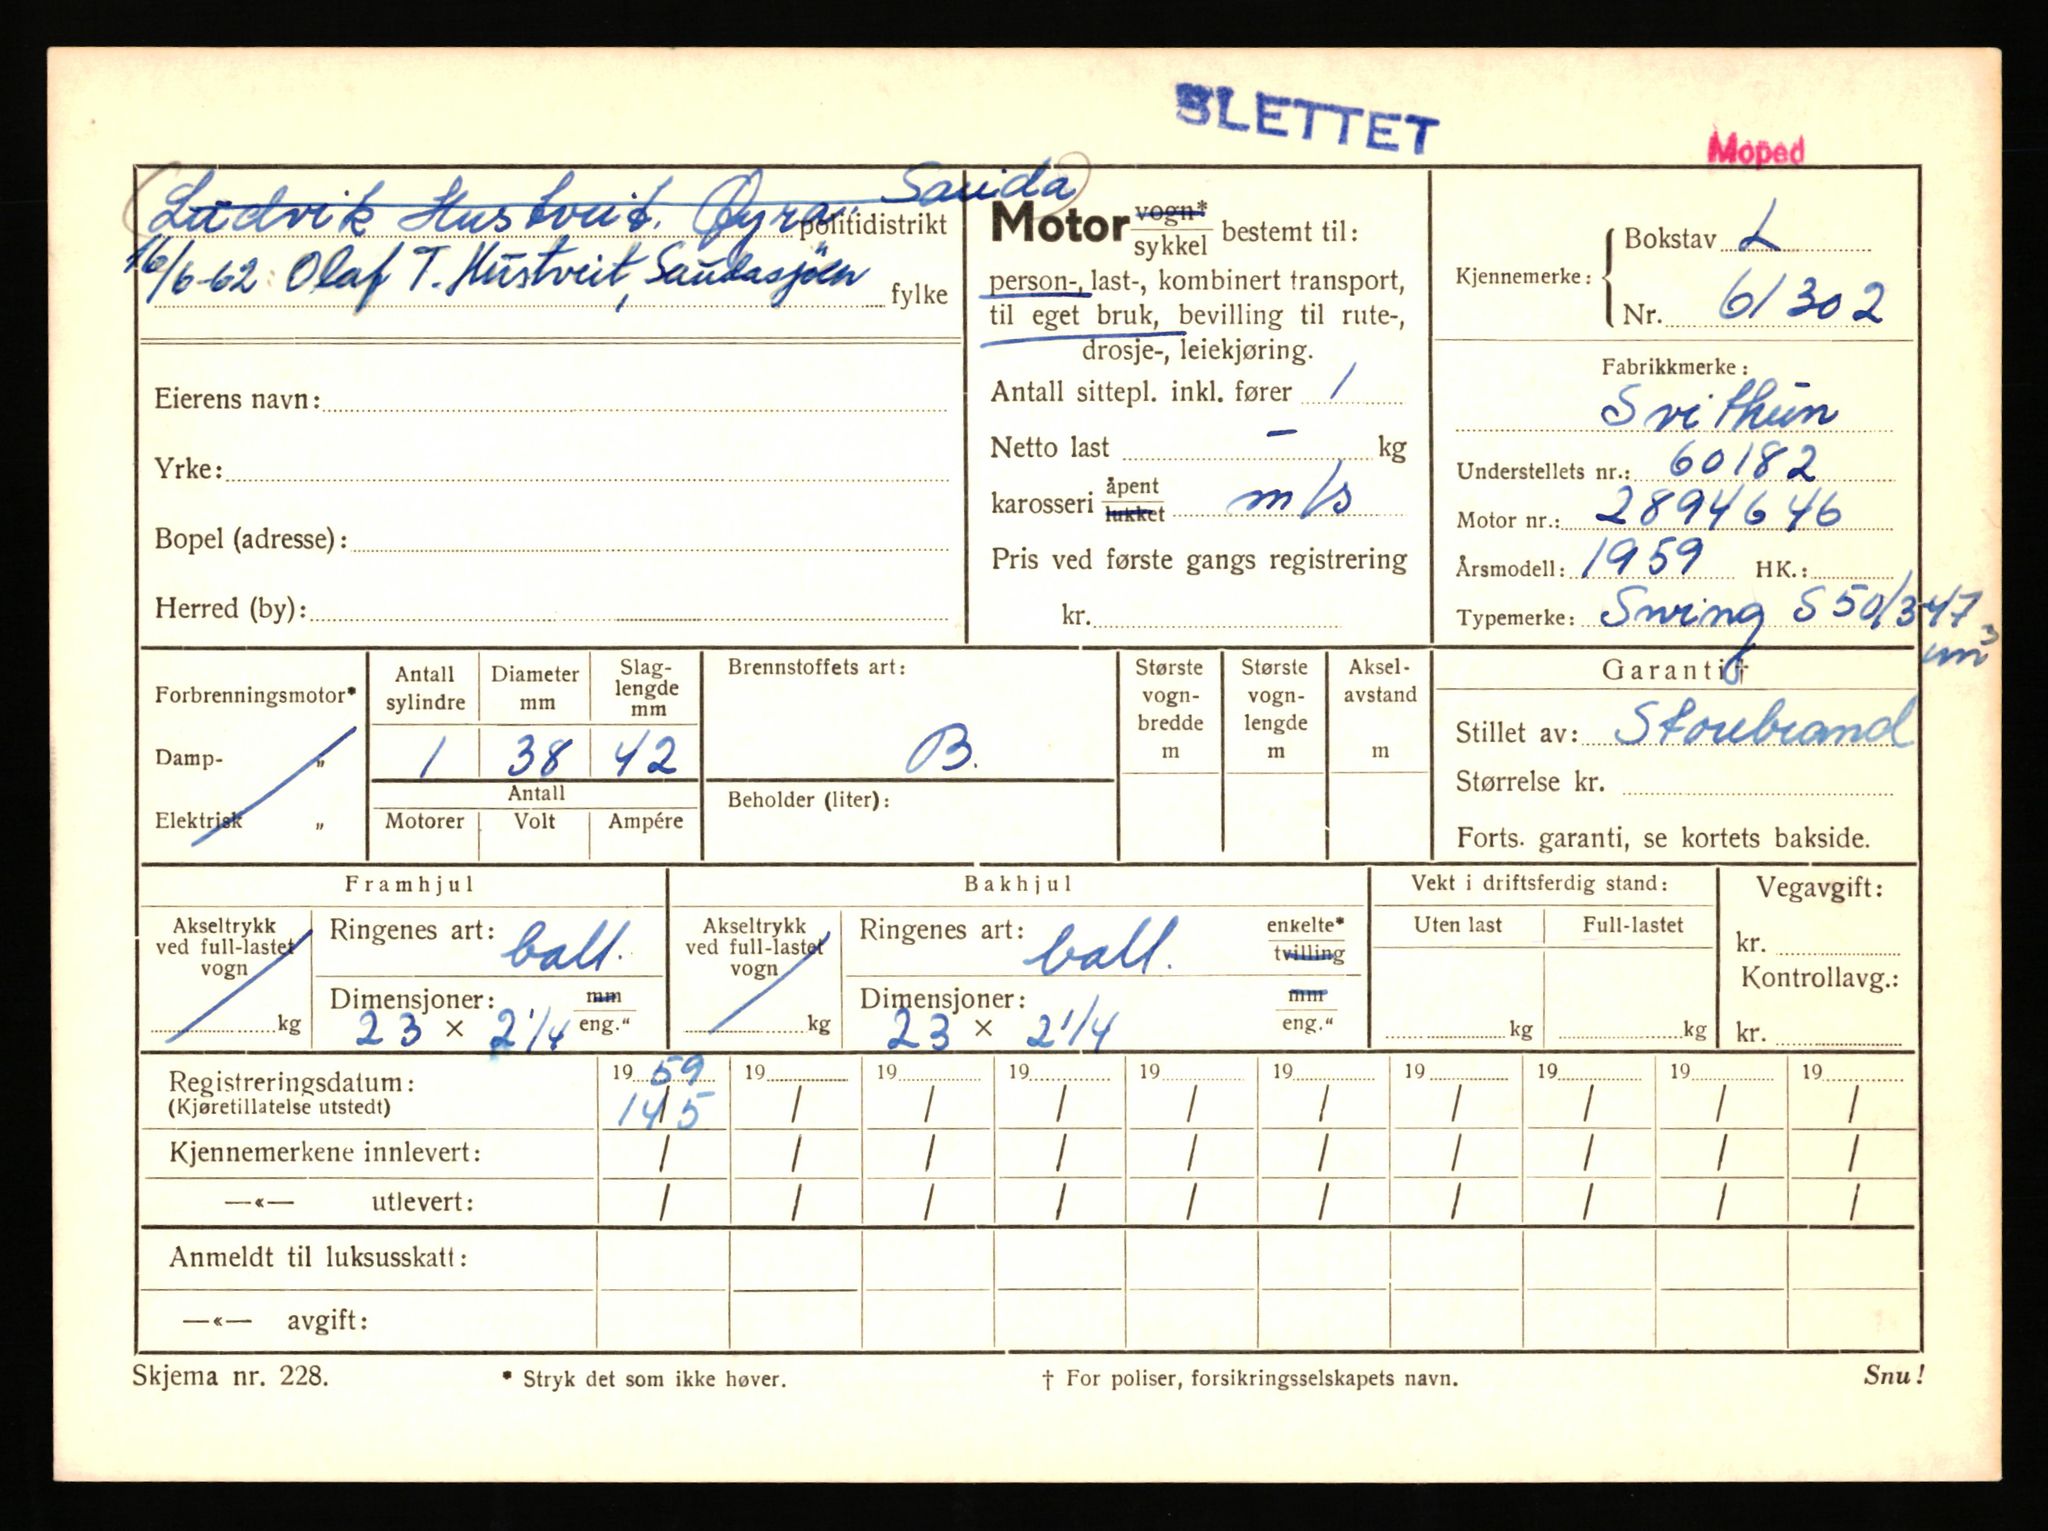 SLETTET
Moped
Ludvik Hustveit. Øyra. Sauda
politidistrikt
16/6-62 Olaf T. Hustveit, Saudasjöen
fylke
Eierens navn:
Yrke:
Bopel (adresse):
Herred (by):
Motor vogn* sykkel bestemt til:
person-, last-, kombinert transport,
til eget bruk, bevilling til rute-,
drosje-, leiekjøring.
Antall sittepl. inkl. fører 1
Netto last – kg
karosseri åpent lukket m/s
Pris ved første gangs registrering
kr.
Kjennemerke: Bokstav L
Nr. 61302
Fabrikkmerke:
Svithun
Understellets nr.: 60182
Motor nr.: 2894646
Årsmodell: 1959 HK.:
Typemerke: Swing S 50/3 47
cm3
Forbrenningsmotor*
Damp- „
Elektrisk „
Antall sylindre
Diameter mm
Slag-lengde mm
1 38 42
Antall
Motorer Volt Ampére
Brennstoffets art:
B.
Beholder (liter):
Største vogn-bredde m
Største vogn-lengde m
Aksel-avstand m
Garanti†
Stillet av: Storebrand
Størrelse kr.
Forts. garanti, se kortets bakside.
Framhjul
Akseltrykk ved full-lastet vogn
kg
Ringenes art: ball.
Dimensjoner: mm eng."
23 × 2 1/4
Bakhjul
Akseltrykk ved full-lastet vogn
kg
Ringenes art: ball. enkelte* tvilling
Dimensjoner: mm eng."
23 × 2 1/4
Vekt i driftsferdig stand:
Uten last Full-lastet
kg kg
Vegavgift:
kr.
Kontrollavg.:
kr.
Registreringsdatum: 19 59 19 19 19 19 19 19 19 19 19
(Kjøretillatelse utstedt) 14/5 / / / / / / / / /
Kjennemerkene innlevert: / / / / / / / / / /
—«— utlevert: / / / / / / / / / /
Anmeldt til luksusskatt:
—«— avgift:
Skjema nr. 228.
* Stryk det som ikke høver.
† For poliser, forsikringsselskapets navn.
Snu!